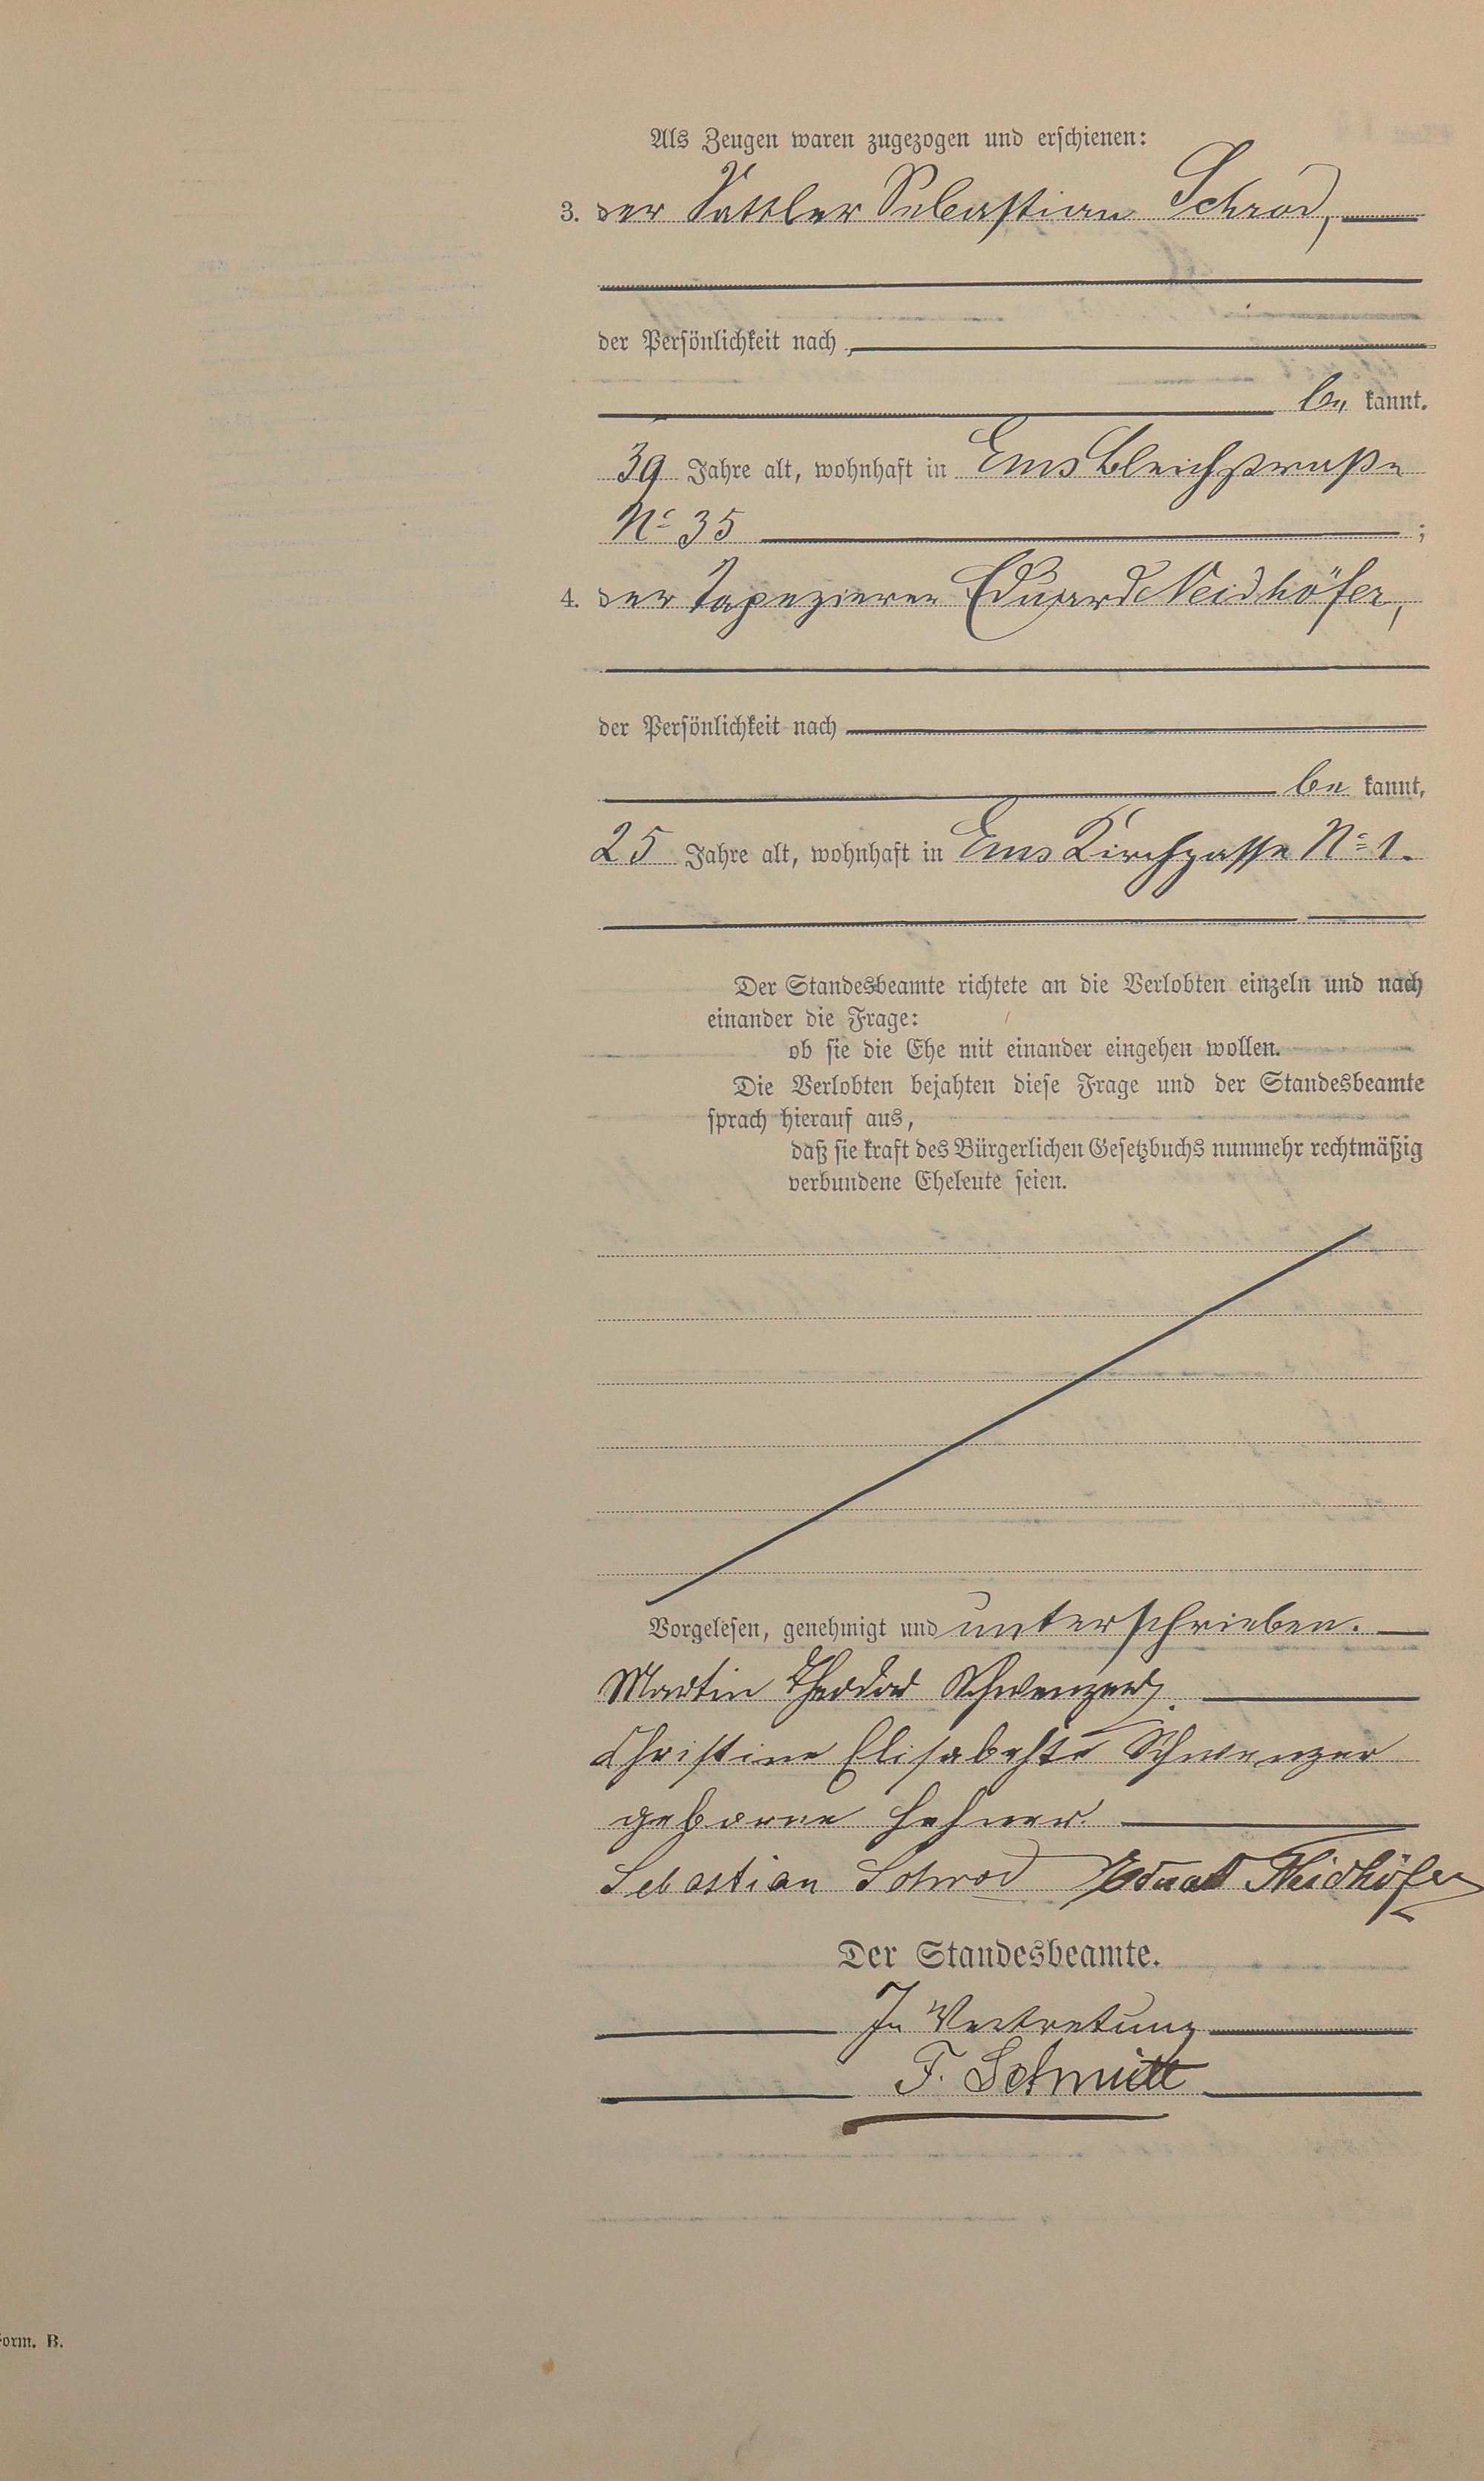 Als Zeugen waren zugezogen und erschienen:
3. der Sattler Sebastian Schrod,
der Persönlichkeit nach
be kannt.
39 Jahre alt, wohnhaft in Ems Bleichstraße
No 35 ;
4. der Tapezierer Eduard Neidhöfer,
der Persönlichkeit nach
be kannt,
25 Jahre alt, wohnhaft in Ems Kirchgasse No 1.
Der Standesbeamte richtete an die Verlobten einzeln und nach
einander die Frage:
ob sie die Ehe mit einander eingehen wollen.
Die Verlobten bejahten diese Frage und der Standesbeamte
sprach hierauf aus,
daß sie kraft des Bürgerlichen Gesetzbuchs nunmehr rechtmäßig
verbundene Eheleute seien.
Vorgelesen, genehmigt und unterschrieben.
Martin Theodor Schwenzer.
Christine Elisabehte Schwenzer
geborne Hehner.
Sebastian Schrod Eduard Neidhöfer
Der Standesbeamte.
In Vertretung
F. Schmitt
Form. B.